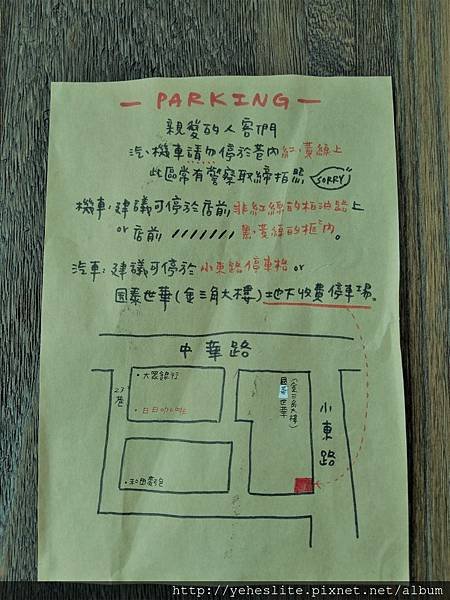 — PARKING —
親愛的人客們
汽、機車請勿停於巷內紅、黃線上
此區常有警察取締拍照 SORRY
機車：建議可停於店前非紅線的柏油路上
or 店前 ///////// 黑、黃線的框內。
汽車：建議可停於小東路停車格 or
國泰世華(金三角大樓)地下收費停車場。
中華路
23巷
•大眾銀行
•日日咖啡
國泰世華
(金三角大樓)
小東路
http://yeheslite.pixnet.net/album